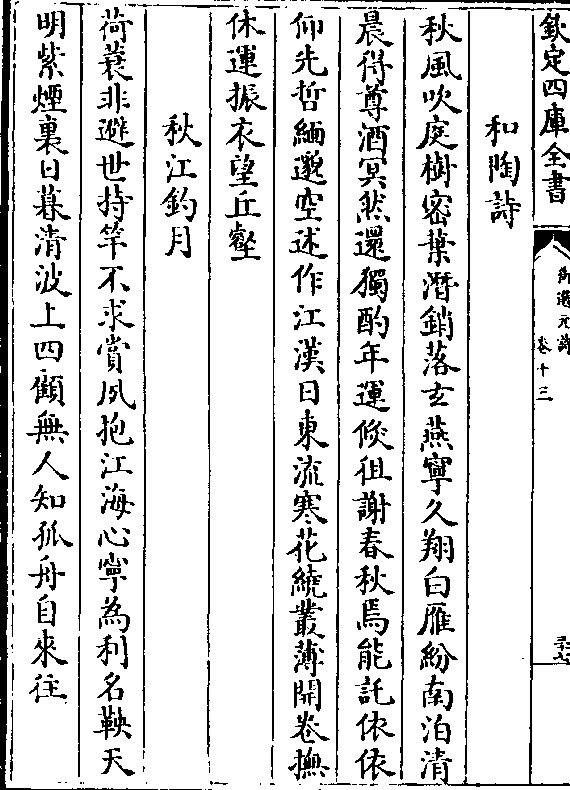 欽定四庫全書
御選元詩
卷十三
和陶詩
秋風吹庭樹密葉潛銷落玄燕寧久翔白雁紛南泊清
晨得尊酒冥然還獨酌年運倐徂謝春秋焉能託依依
仰先哲緬邈空述作江漢日東流寒花繞叢薄開卷撫
休運振衣望丘壑
秋江釣月
荷蓑非避世持竿不求賞夙抱江海心寧為利名鞅天
明紫煙裏日暮清波上四顧無人知孤舟自來往